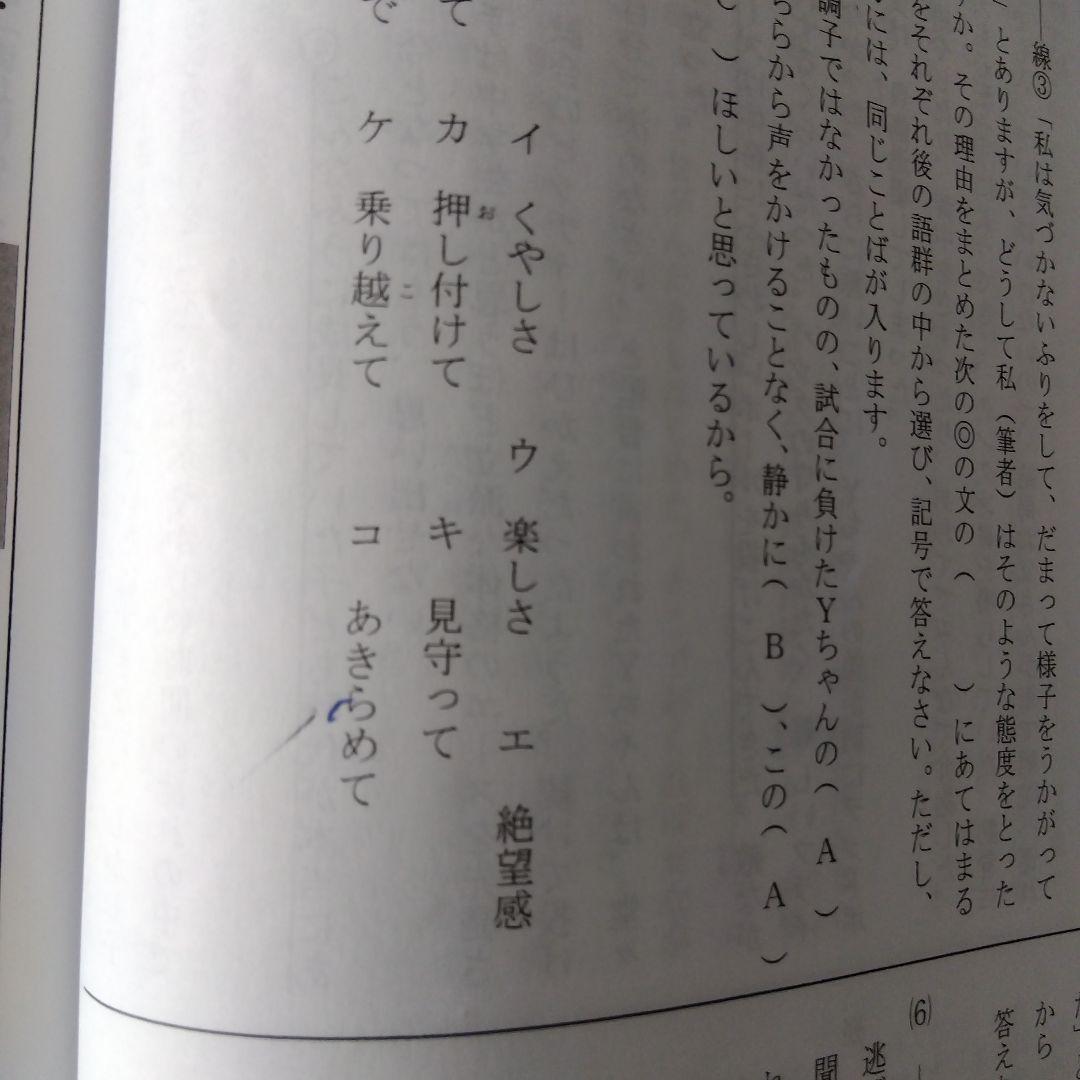 線③「私は気づかないふりをして、だまって様子をうかがって
」とありますが、どうして私（筆者）はそのような態度をとった
か。その理由をまとめた次の◎の文の（　　）にあてはまる
をそれぞれ後の語群の中から選び、記号で答えなさい。ただし、
には、同じことばが入ります。
調子ではなかったものの、試合に負けたYちゃんの（　A　）
らから声をかけることなく、静かに（　B　）、この（　A　）
）ほしいと思っているから。
イ　くやしさ　ウ　楽しさ　エ　絶望感
て　カ　押し付けて　キ　見守って
で　ケ　乗り越えて　コ　あきらめて
お
こ
から
答え
(6)
逃
聞